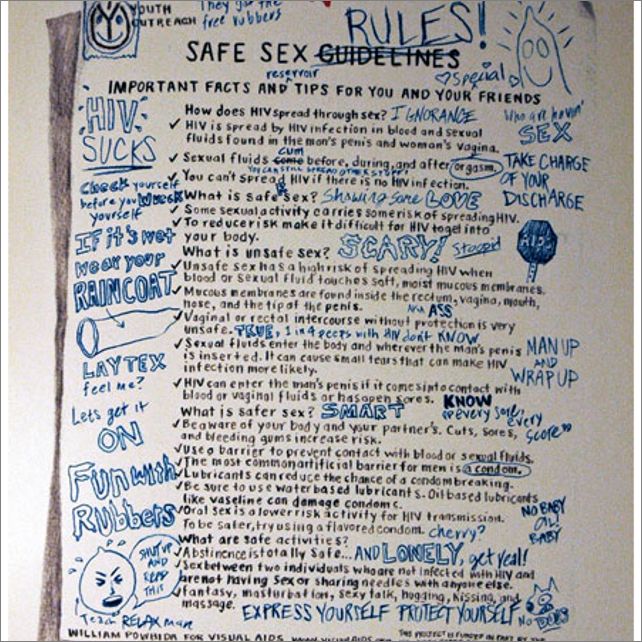 YOUTH OUTREACH
They got the free rubbers
RULES!
SAFE SEX GUIDELINES
reservoir
Special
IMPORTANT FACTS AND TIPS FOR YOU AND YOUR FRIENDS
HIV SUCKS
How does HIV spread through sex? IGNORANCE
Who are havin' SEX
✓ HIV is spread by HIV infection in blood and sexual
fluids found in the man's penis and woman's vagina.
cum
✓ Sexual fluids come before, during, and after orgasm.
TAKE CHARGE
OF YOUR
DISCHARGE
YOU CAN STILL SPREAD OTHER STUFF!
✓ You can't spread HIV if there is no HIV infection.
Check yourself
before you WRECK
yourself
What is safe sex? Showing some LOVE
✓ Some sexual activity carries some risk of spreading HIV.
✓ To reduce risk make it difficult for HIV to get into
your body.
IF it's wet
wear your
RAINCOAT
What is unsafe sex? SCARY! Stoopid
AIDS
✓ Unsafe sex has a high risk of spreading HIV when
blood or sexual fluid touches soft, moist mucous membranes.
✓ Mucous membranes are found inside the rectum, vagina, mouth,
nose, and the tip of the penis.
AKA ASS
✓ Vaginal or rectal intercourse without protection is very
unsafe. TRUE, 1 in 4 peeps with HIV don't KNOW
✓ Sexual fluids enter the body and wherever the man's penis
is inserted. It can cause small tears that can make HIV
infection more likely.
MAN UP
AND
WRAP UP
LAYTEX
feel me?
✓ HIV can enter the man's penis if it comes into contact with
blood or vaginal fluids or has open sores. KNOW
"every sore, every score"
Lets get it
ON
What is safer sex? SMART
✓ Be aware of your body and your partner's. Cuts, sores,
and bleeding gums increase risk.
✓ Use a barrier to prevent contact with blood or sexual fluids.
✓ The most common artificial barrier for men is a condom.
Fun with
Rubbers
✓ Lubricants can reduce the chance of a condom breaking.
✓ Be sure to use water based lubricants. Oil based lubricants
like vaseline can damage condoms.
NO BABY
OIL!
BABY
✓ Oral sex is a lower risk activity for HIV transmission.
To be safer, try using a flavored condom. cherry?
What are safe activities?
✓ Abstinence is totally safe... AND LONELY, get real!
SHUT UP
AND
READ
THIS
✓ Sex between two individuals who are not infected with HIV and
are not having sex or sharing needles with anyone else.
✓ Fantasy, masturbation, sexy talk, hugging, kissing, and
massage. EXPRESS YOURSELF PROTECT YOURSELF
No DOGS
RELAX man
WILLIAM POWHIDA FOR VISUAL AIDS www.visualaids.org
THIS PROJECT IS FUNDED IN PART BY THE